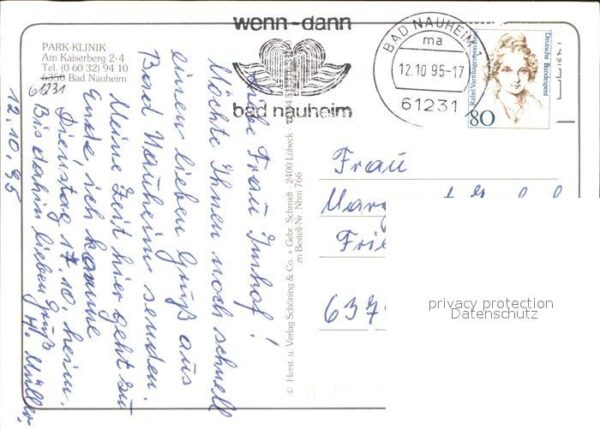 PARK-KLINIK
Am Kaiserberg 2-4
Tel. (0 60 32) 94 10
6350 Bad Nauheim
61231
12.10.95
wenn-dann
bad nauheim
BAD NAUHEIM 1
ma
12.10.95-17
61231
Deutsche Bundespost
80
Liebe Frau Imhof!
Möchte Ihnen noch schnell
einen lieben Gruß aus
Bad Nauheim senden.
Meine Zeit hier geht zu
Ende, ich komme
Dienstag 17.10. heim.
Bis dahin lieben Gruß
H. Müller.
© Horst. u. Verlag Schöning & Co. + Gebr. Schmidt · 2400 Lübeck
Bestell-Nr. Nhm 766
Frau
Marg
Frie
637
privacy protection
Datenschutz